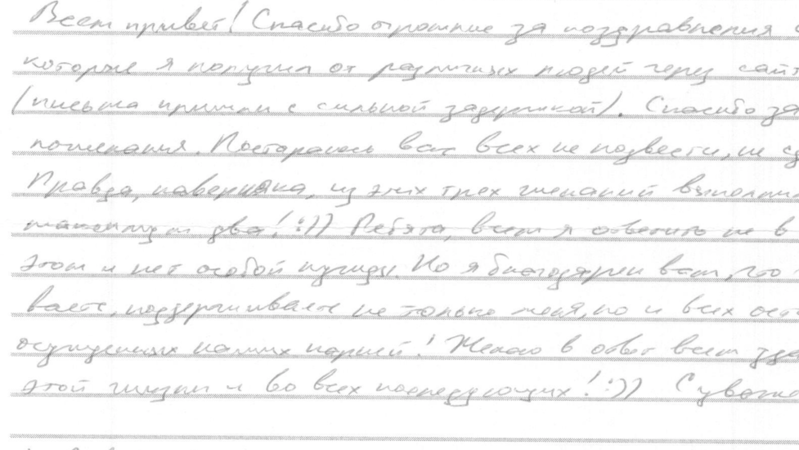 Всем привет! Спасибо огромное за поздравления
которые я получил от различных людей через сайт
(письма пришли с сильной задержкой). Спасибо за
пожелания. Постараюсь вас всех не подвести, не
Правда, наверняка, из этих трех желаний
максимум два! :)) Ребята, всем я ответить не в
этом и нет особой нужды. Но я благодарен вам, что
ваете, поддерживаете не только меня, но и всех ост
осужденных наших парней! Желаю в ответ всем
этой жизни и во всех последующих! :)) С уваже